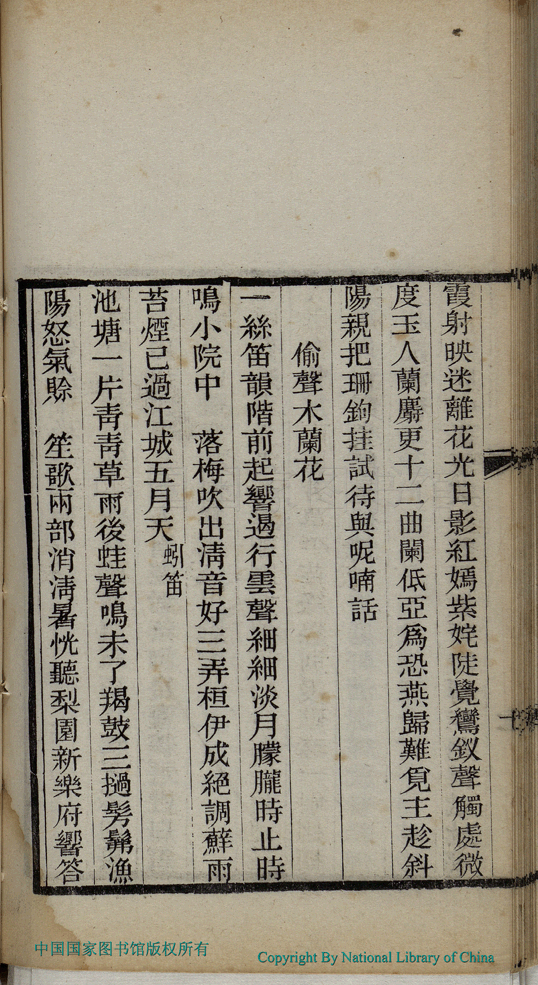 霞射映迷離花光日影紅嫣紫姹陡覺鸞釵聲觸處微
度玉人蘭麝更十二曲闌低亞爲恐燕歸難覓主趁斜
陽親把珊鉤挂試待與呢喃話
偷聲木蘭花
一絲笛韻階前起響遏行雲聲細細淡月朦朧時止時
鳴小院中　落梅吹出淸音好三弄桓伊成絕調蘚雨
苔煙已過江城五月天蚓笛
池塘一片靑靑草雨後蛙聲鳴未了羯鼓三撾髣髴漁
陽怒氣賒　笙歌兩部消淸暑恍聽梨園新樂府響答
中国国家图书馆版权所有
Copyright By National Library of China